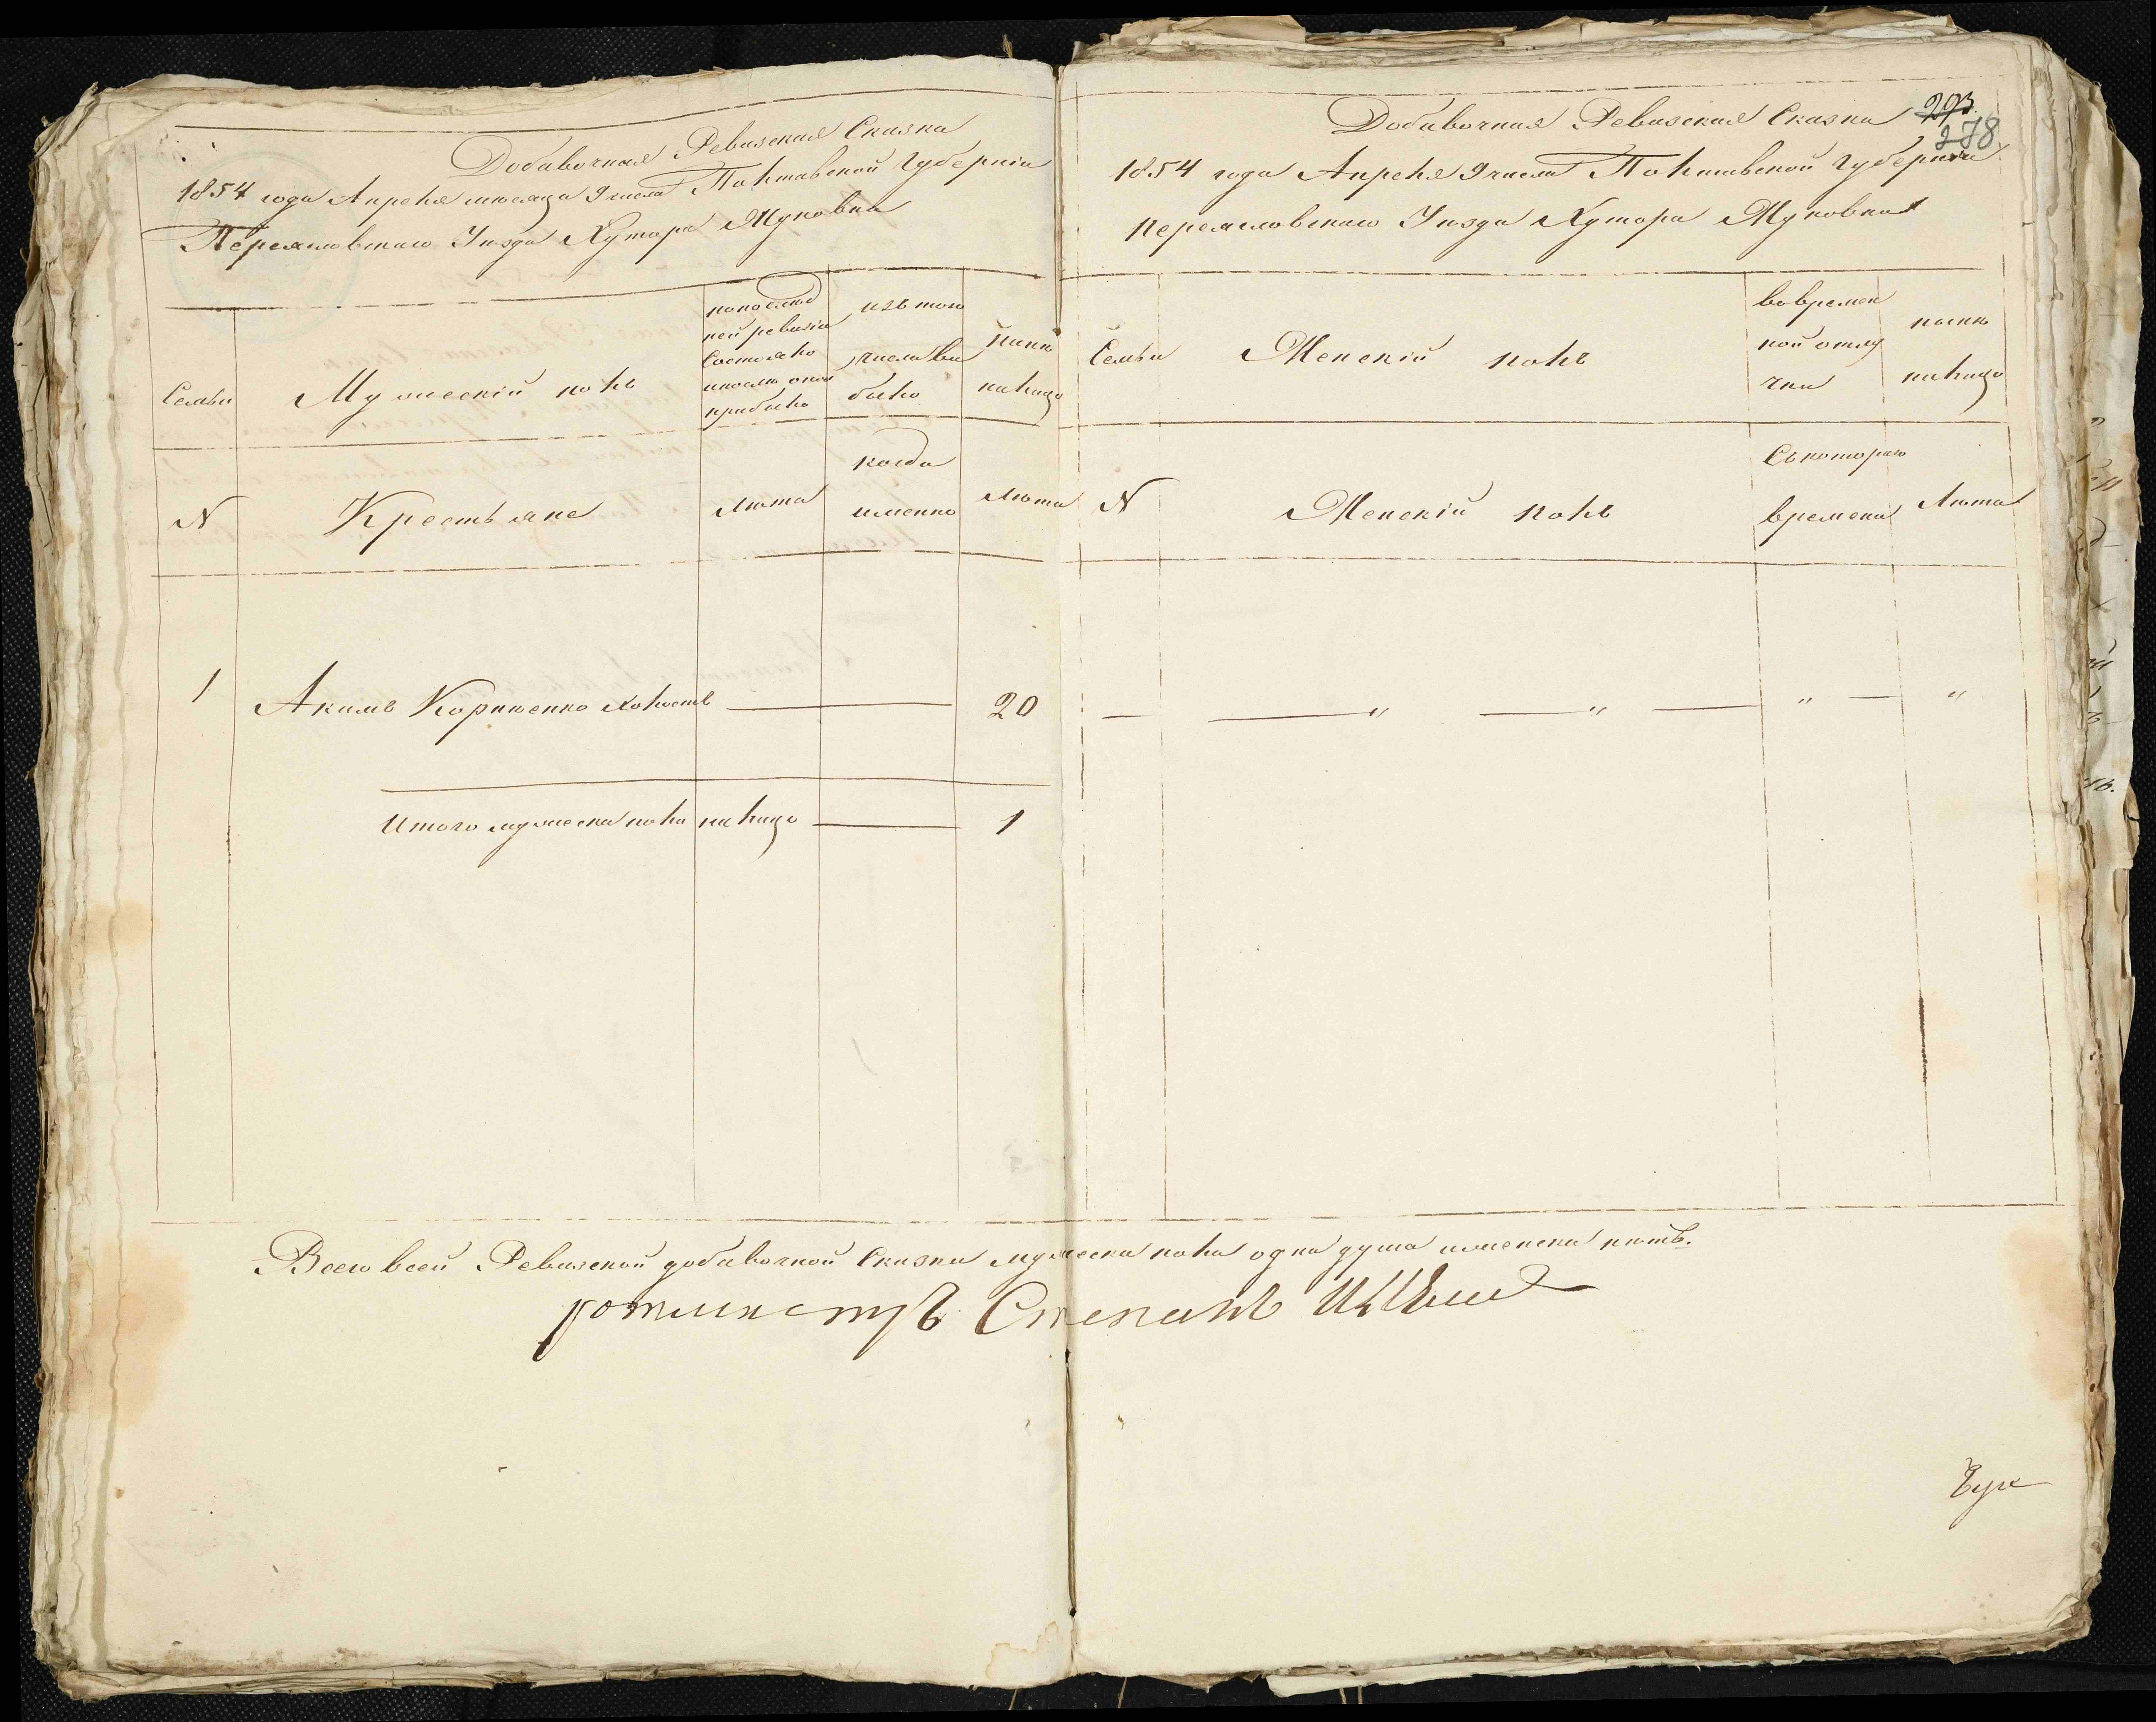 Добавочная Ревизская Сказка
1854 года Апреля месяца 9 числа Полтавской Губерніи
Переясловскаго Уезда Хутора Муковки
Семьи
Мужескій полъ
по послед
ней ревизіи
состояло
и после оной
прибыло
изъ того
числа вы
было
Ныне
на лицо
N
Крестьяне
Лета
когда
именно
Лета
1 Акимъ Корниенко холостъ 20
Итого мужеска пола на лицо 1
293
278
Добавочная Ревизская Сказка
1854 года Апреля 9 числа Полтавской Губерніи
Переясловскаго Уезда Хутора Муковки
Семьи
Женскій полъ
во времен
ной отлу
чки
ныне
на лицо
N
Женскій полъ
Съ котораго
времени
Лета
— — " — " — " — "
Всего в сей Ревизской добавочной Сказки мужеска пола одна душа и женска нетъ.
ротмистръ Степанъ